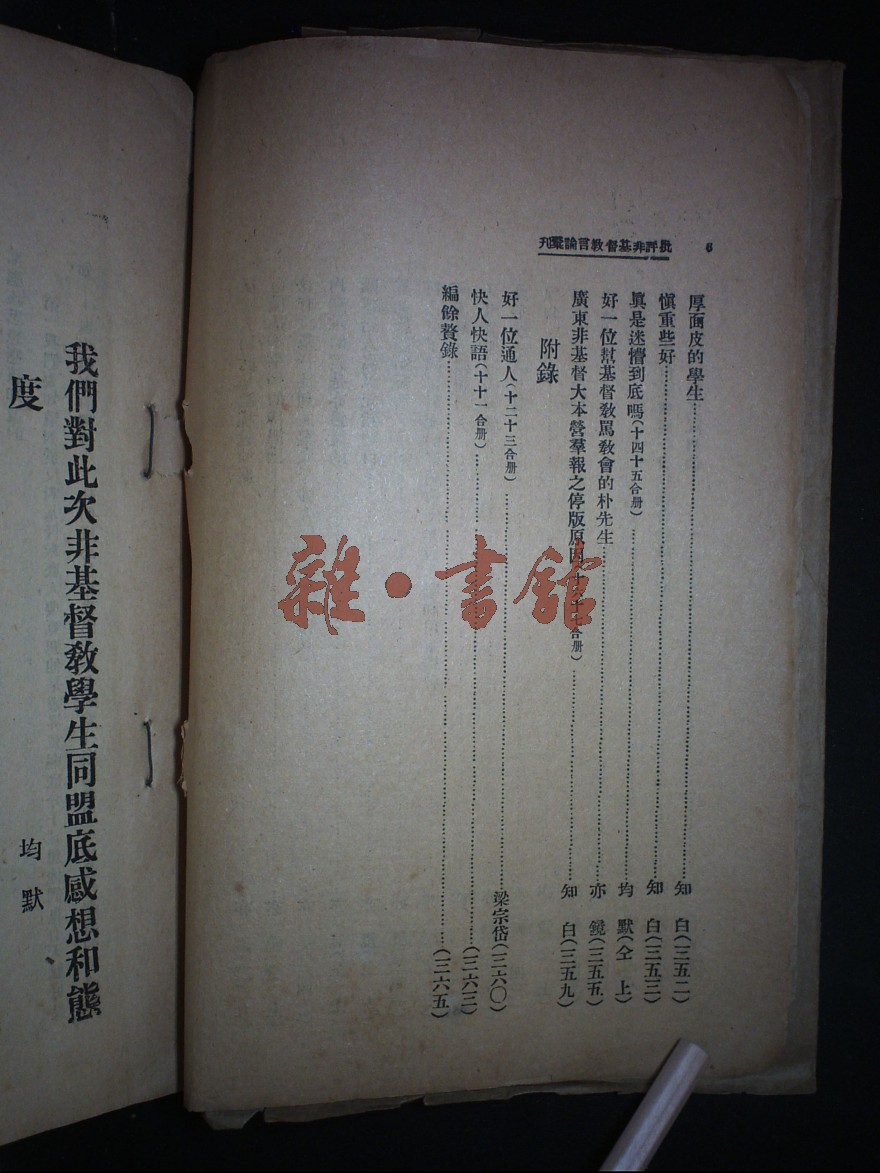 批評非基督教言論彙刊 6
厚面皮的學生……知 白(三五二)
愼重些好……知 白(三五三)
眞是迷懵到底嗎(十四十五合册)……均 默(仝 上)
好一位幫基督敎罵敎會的朴先生……亦 鏡(三五五)
廣東非基督大本營羣報之停版原因(十六十七合册)……知 白(三五九)
附錄
好一位通人(十二十三合册)……梁宗岱(三六〇)
快人快語(十十一合册)……(三六三)
編餘贅錄……(三六五)
我們對此次非基督敎學生同盟底感想和態
度
均 默
雜·書館